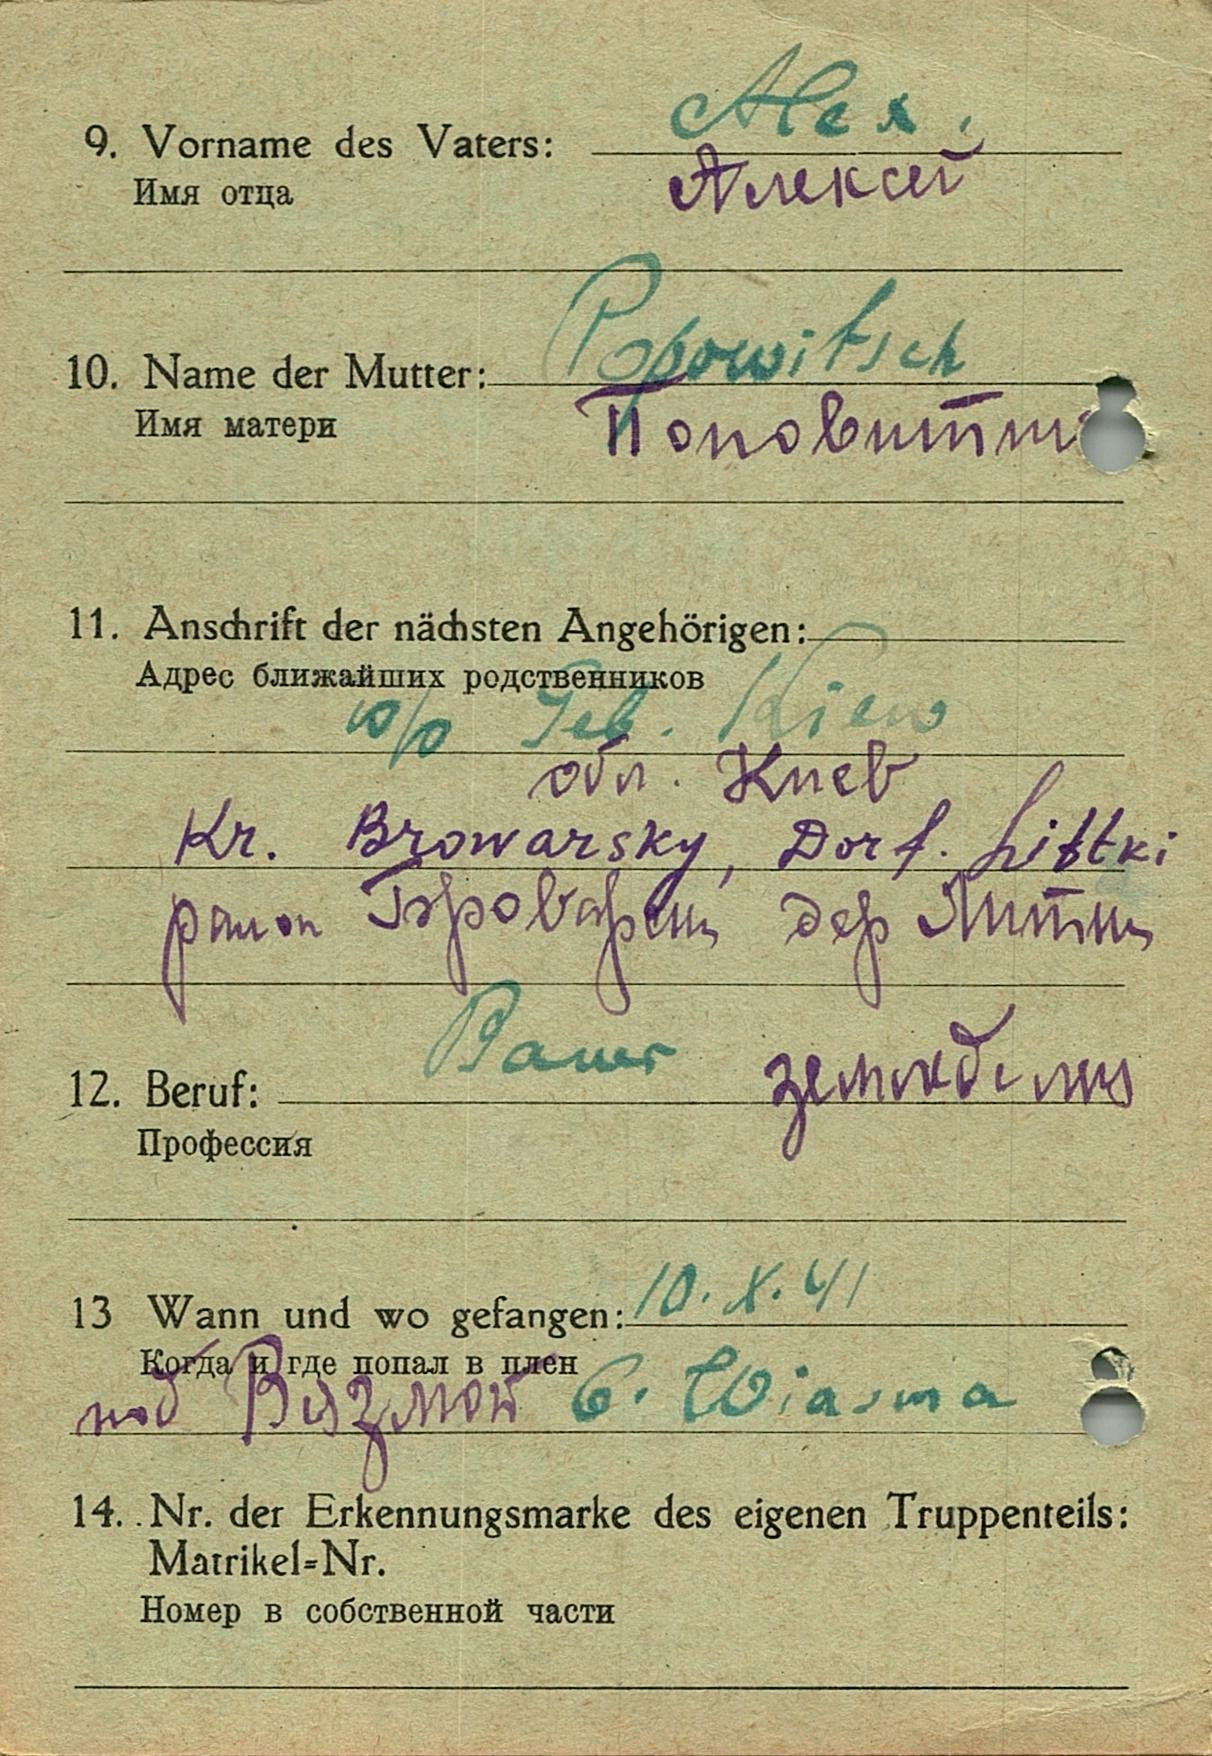 Alex.
9. Vorname des Vaters:
Имя отца
Алексей
Popowitsch
10. Name der Mutter:
Имя матери
11. Anschrift der nächsten Angehörigen:
Адрес ближайших родственников
Geb. Kiew
обл. Киев
Kr. Browarsky, Dorf. Littki
район дер
Bauer
12. Beruf:
Профессия
13 Wann und wo gefangen: 10. X. 41
Когда и где попал в плен
под Вязмой b. Wiasma
14. Nr. der Erkennungsmarke des eigenen Truppenteils:
Matrikel=Nr.
Номер в собственной части